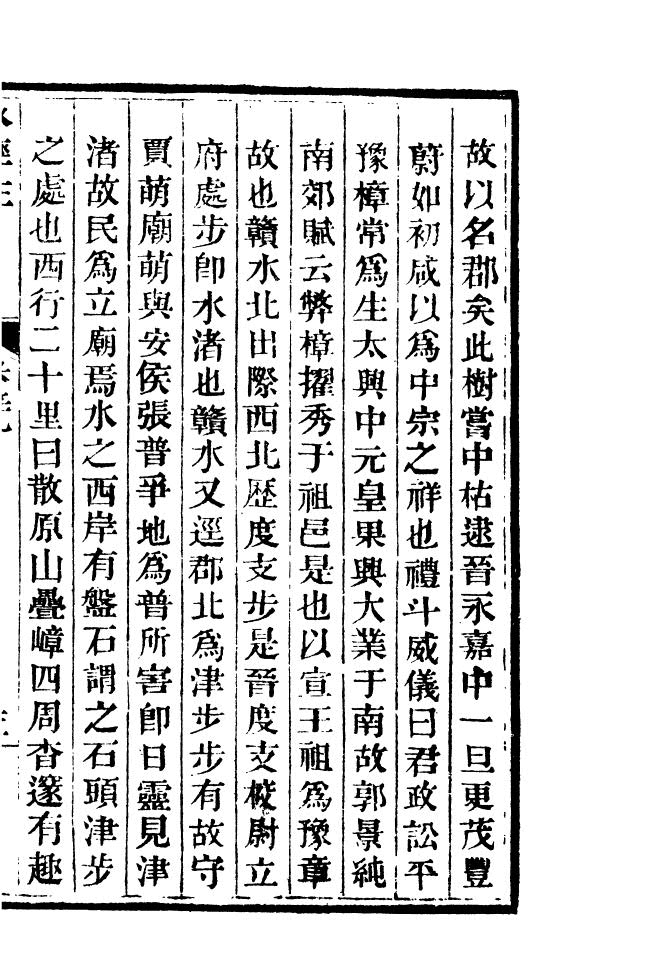 故以名郡矣此樹嘗中枯逮晉永嘉中一旦更茂豐
蔚如初咸以爲中宗之祥也禮斗威儀曰君政訟平
豫樟常爲生太興中元皇果興大業于南故郭景純
南郊賦云弊樟擢秀于祖邑是也以宣王祖爲豫章
故也贛水北出際西北歷度支步是晉度支校尉立
府處步卽水渚也贛水又逕郡北爲津步步有故守
賈萌廟萌與安侯張普爭地爲普所害卽日靈見津
渚故民爲立廟焉水之西岸有盤石謂之石頭津步
之處也西行二十里曰散原山疊嶂四周杳邃有趣
水經注